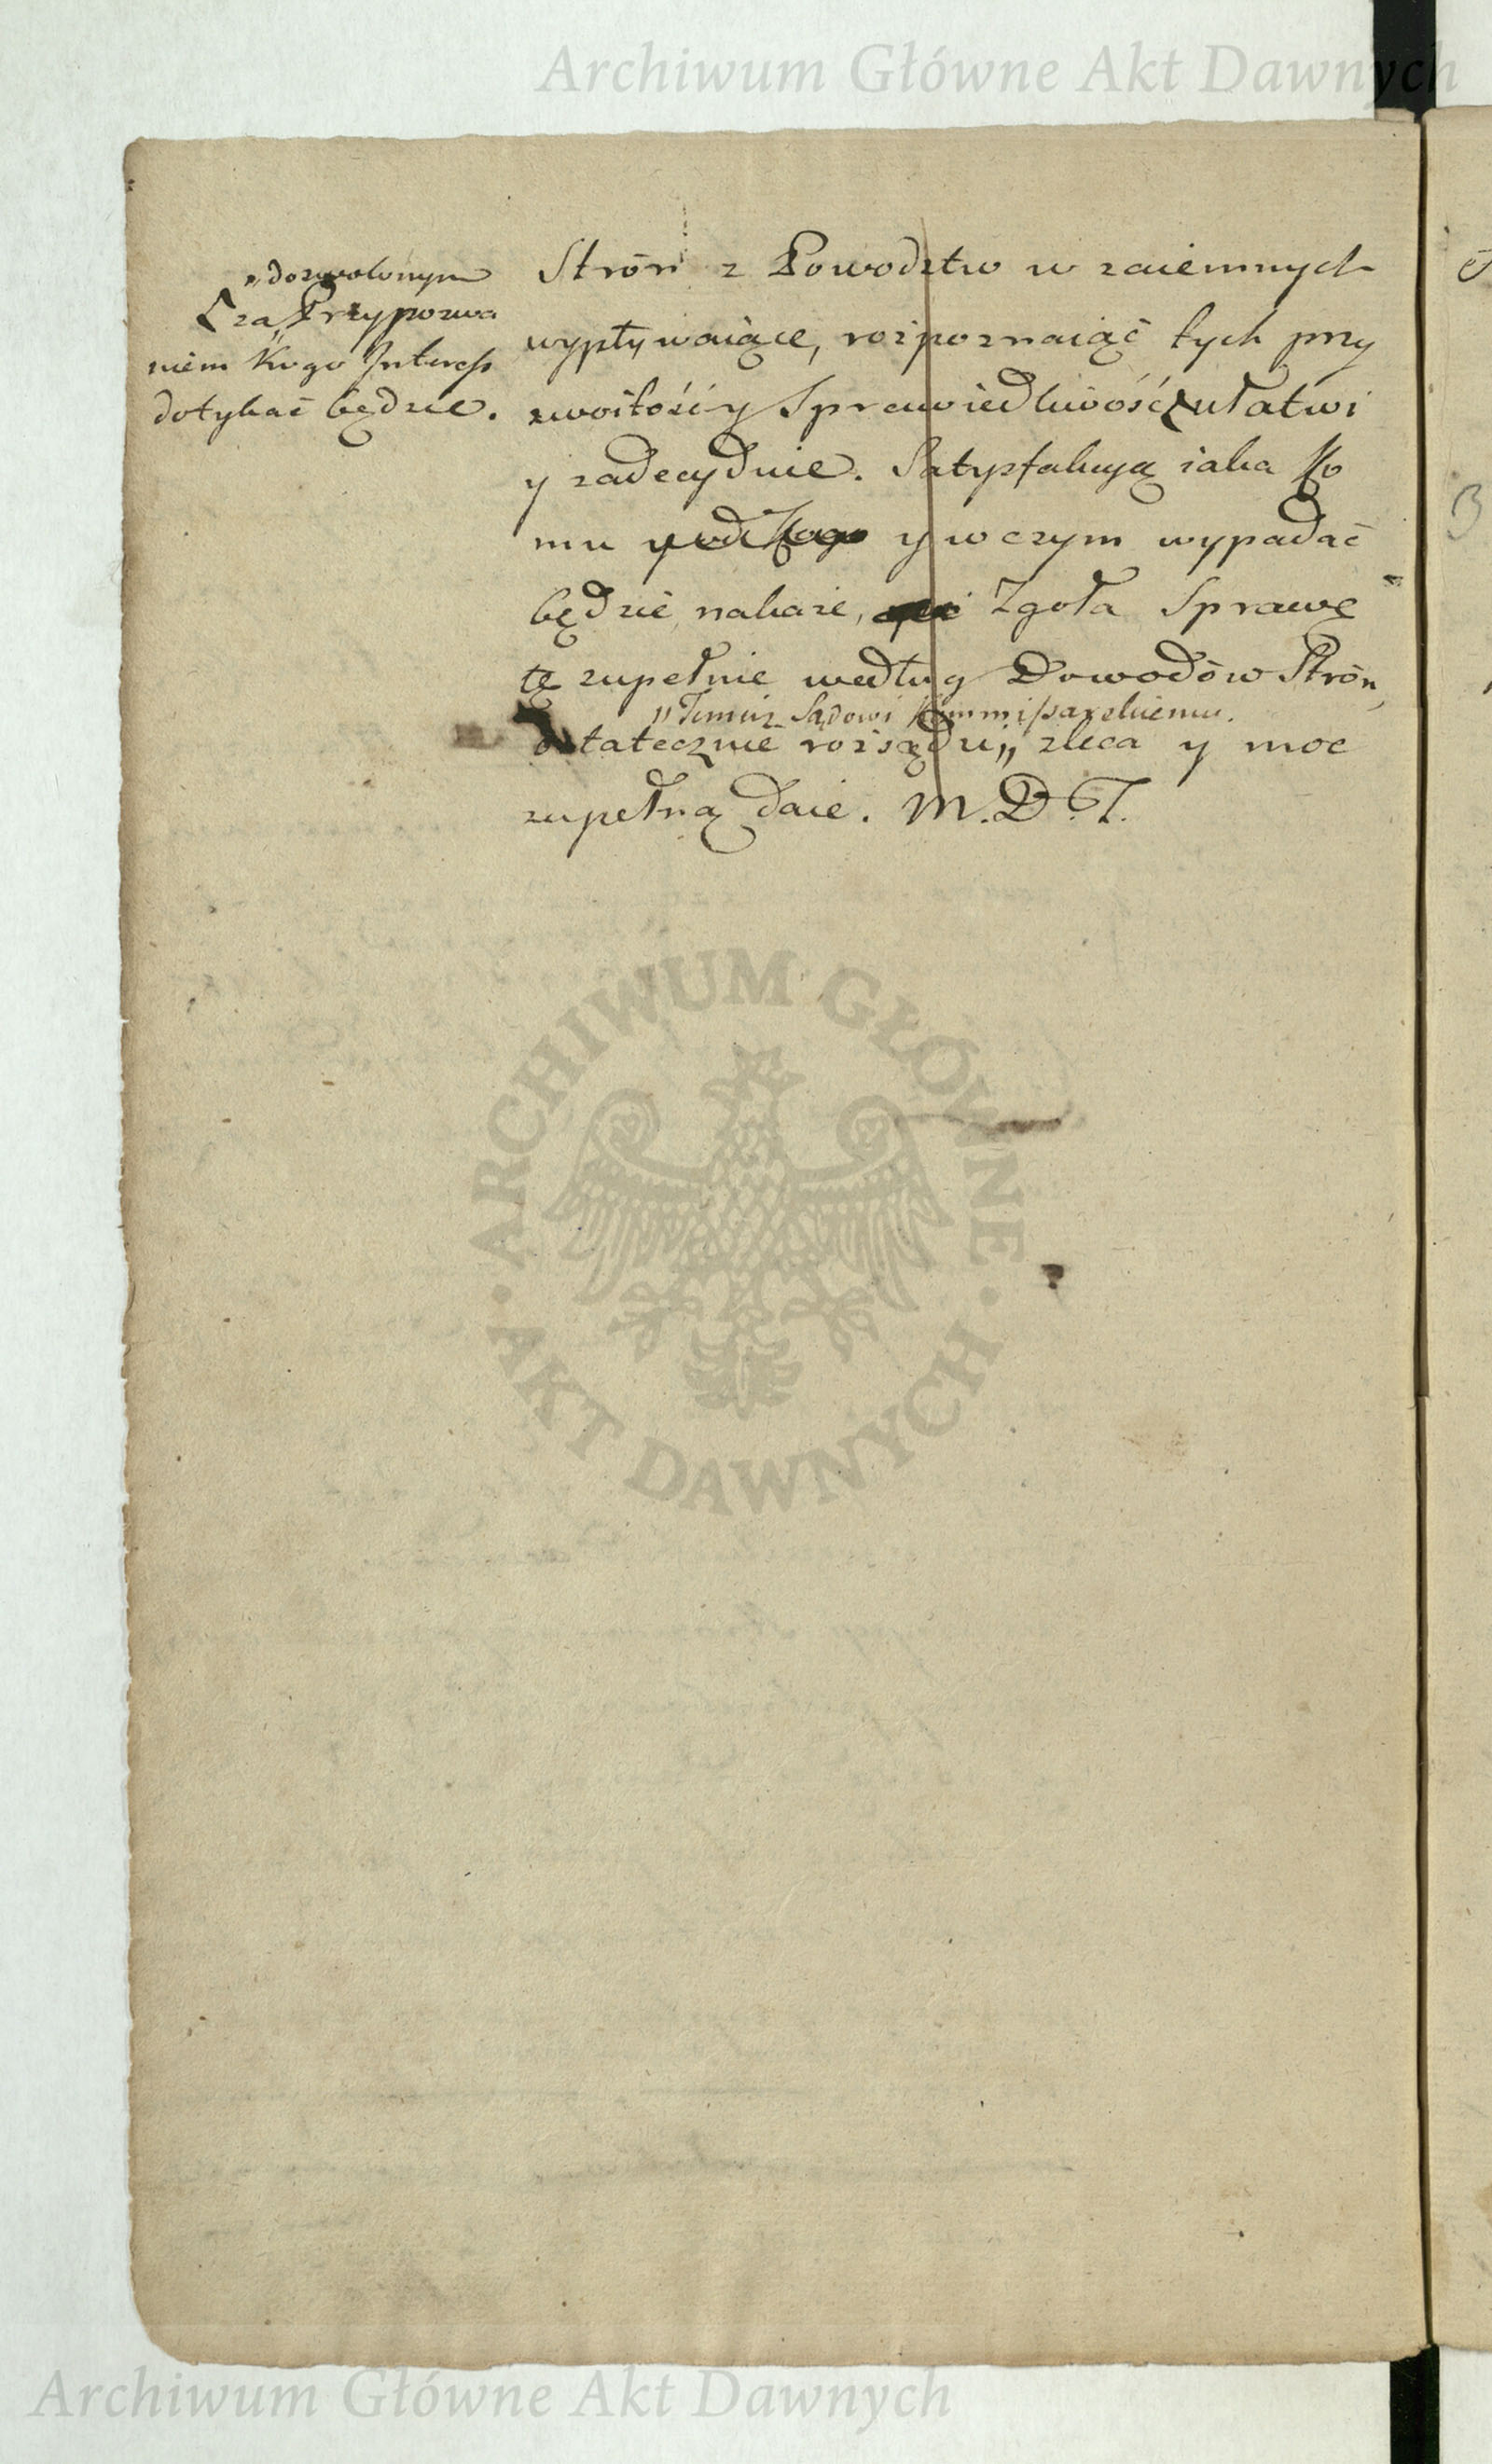 Archiwum Główne Akt Dawnych
„dozwolonym
[za„ Przypozwa
niem Kogo Interess
dotykać będzie.
Strón z Powodztw wzaiemnych
wypływaiące, rozpoznaiąć tych przy
zwoitość y Sprawiedliwość [ułatwi
y zadecyduie. Satysfakcyą iaka Ko
mu y od Kogo y w czym wypadać
będzie, nakaże, Zgoła Sprawę
tę zupełnie według Dowodów Strón,
„Temuż Sądowi Kommissarskiemu.
ostatecznie rozsądzi„ zleca y moc
zupełną daie. M.D.T.
ARCHIWUM GŁÓWNE · AKT DAWNYCH ·
Archiwum Główne Akt Dawnych